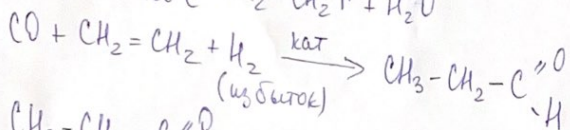 CH₂ + H₂O
CO + CH₂ = CH₂ + H₂ кат → CH₃ – CH₂ – C =O
(избыток) – H
=O